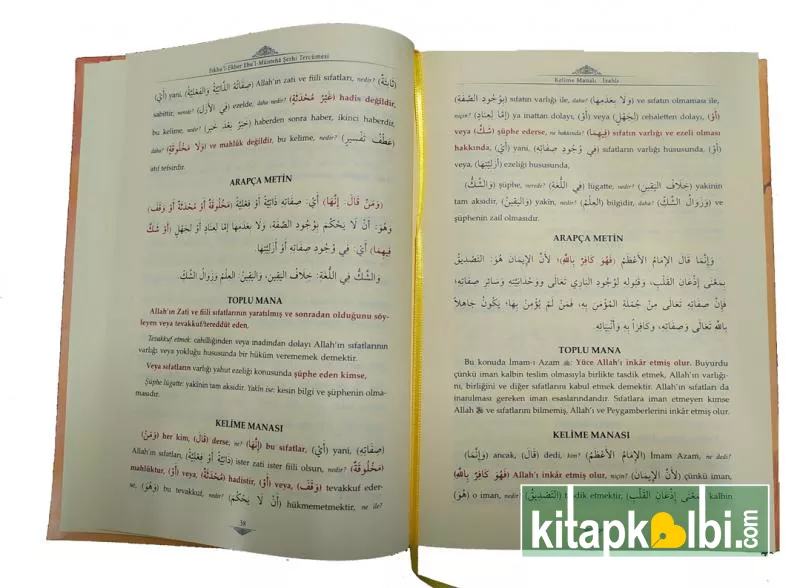 Fıkhu'l-Ekber Ebu'l-Münteha Şerhi Tercümesi
(ثَابِتَةٌ) Allah'ın zati ve fiili sıfatları, nedir? (صِفَاتُهُ الذَّاتِيَّةُ وَالْفِعْلِيَّةُ) yani, (أَيْ)
sabittir, nerede? (فِي الْأَزَلِ) ezelde, daha nedir? (غَيْرُ مُحْدَثَةٍ) hadis değildir,
bu kelime, nedir? (خَبَرٌ بَعْدَ خَبَرٍ) haberden sonra haber, ikinci haberdir,
daha? (وَلَا مَخْلُوقَةٍ) ve mahlûk değildir, bu kelime, nedir? (عَطْفُ تَفْسِيرٍ)
atıf tefsirdir.
ARAPÇA METİN
(وَمَنْ قَالَ: إِنَّهَا) أَيْ: صِفَاتِهِ ذَاتِيَّةً أَوْ فِعْلِيَّةً (مَخْلُوقَةٌ أَوْ مُحْدَثَةٌ أَوْ وَقَفَ)
وَهُوَ: أَنْ لَا يَحْكُمَ بِوُجُودِ الصِّفَةِ، وَلَا بِعَدَمِهَا إِمَّا لِعِنَادٍ أَوْ لِجَهْلٍ (أَوْ شَكَّ
فِيهِمَا) أَيْ: فِي وُجُودِ صِفَاتِهِ أَوْ أَزَلِيَّتِهَا.
وَالشَّكُّ فِي اللُّغَةِ: خِلَافُ الْيَقِينِ، وَالْيَقِينُ: الْعِلْمُ وَزَوَالُ الشَّكِّ.
TOPLU MANA
Allah'ın Zati ve fiili sıfatlarının yaratılmış ve sonradan olduğunu söy-
leyen veya tevakkuf/tereddüt eden,
Tevakkuf etmek: cahilliğinden veya inadından dolayı Allah'ın sıfatlarının
varlığı veya yokluğu hususunda bir hüküm verememek demektir.
Veya sıfatların varlığı yahut ezeliği konusunda şüphe eden kimse,
Şüphe lügatte: yakînin tam aksidir. Yakîn ise: kesin bilgi ve şüphenin olma-
masıdır.
KELİME MANASI
(وَمَنْ) her kim, (قَالَ) derse, ne? (إِنَّهَا) bu sıfatlar, (أَيْ) yani, (صِفَاتِهِ)
Allah'ın sıfatları, (ذَاتِيَّةً أَوْ فِعْلِيَّةً) ister zati ister fiili olsun, nedir? (مَخْلُوقَةٌ)
mahlûktur, (أَوْ) veya, (مُحْدَثَةٌ) hadistir, (أَوْ) veya, (وَقَفَ) tevakkuf eder-
se, (وَهُوَ) bu tevakkuf, nedir? (أَنْ لَا يَحْكُمَ) hükmetmemektir, ne ile?
38
Kelime Manalı, İzahlı
(بِوُجُودِ الصِّفَةِ) sıfatın varlığı ile, daha? (وَلَا بِعَدَمِهَا) ve sıfatın olmaması ile,
niçin? (إِمَّا لِعِنَادٍ) ya inattan dolayı, (أَوْ) veya (لِجَهْلٍ) cehaletten dolayı, (أَوْ)
veya (شَكَّ) şüphe ederse, ne hakkında? (فِيهِمَا) sıfatın varlığı ve ezeli olması
hakkında, (أَيْ) yani, (فِي وُجُودِ صِفَاتِهِ) sıfatların varlığı hususunda, (أَوْ)
veya, (أَزَلِيَّتِهَا) ezeliği hususunda,
(وَالشَّكُّ) şüphe, nerede? (فِي اللُّغَةِ) lügatte, nedir? (خِلَافُ الْيَقِينِ) yakinin
tam aksidir, (وَالْيَقِينُ) yakîn, nedir? (الْعِلْمُ) bilgidir, daha? (وَزَوَالُ الشَّكِّ) ve
şüphenin zail olmasıdır.
ARAPÇA METİN
وَإِنَّمَا قَالَ الْإِمَامُ الْأَعْظَمُ (فَهُوَ كَافِرٌ بِاللَّهِ)؛ لِأَنَّ الْإِيمَانَ هُوَ: التَّصْدِيقُ
بِمَعْنَى إِذْعَانِ الْقَلْبِ، وَقَبُولِهِ لِوُجُودِ الْبَارِي تَعَالَى وَوَحْدَانِيَّتِهِ وَسَائِرِ صِفَاتِهِ؛
فَإِنَّ صِفَاتِ اللَّهِ تَعَالَى مِنْ جُمْلَةِ الْمُؤْمَنِ بِهِ، فَمَنْ لَمْ يُؤْمِنْ بِهَا؛ يَكُونُ جَاهِلًا
بِاللَّهِ تَعَالَى وَصِفَاتِهِ، وَكَافِرًا بِهِ وَأَنْبِيَائِهِ.
TOPLU MANA
Bu konuda İmam-ı Azam: Yüce Allah'ı inkâr etmiş olur. Buyurdu
çünkü iman kalbin teslim olmasıyla birlikte tasdik etmek, Allah'ın varlığı-
nı, birliğini ve diğer sıfatlarını kabul etmek demektir. Allah'ın sıfatları da
inanılması gereken iman esaslarındandır. Sıfatlara iman etmeyen kimse
Allah ve sıfatlarını bilmemiş, Allah'ı ve Peygamberlerini inkâr etmiş olur.
KELİME MANASI
(وَإِنَّمَا) ancak, (قَالَ) dedi, kim? (الْإِمَامُ الْأَعْظَمُ) İmam Azam, ne dedi?
(فَهُوَ كَافِرٌ بِاللَّهِ) Allah'ı inkâr etmiş olur, niçin? (لِأَنَّ الْإِيمَانَ) çünkü iman,
(هُوَ) o iman, nedir? (التَّصْدِيقُ) tasdik etmektir, (بِمَعْنَى إِذْعَانِ الْقَلْبِ) kalbin
kitapkalbi.com